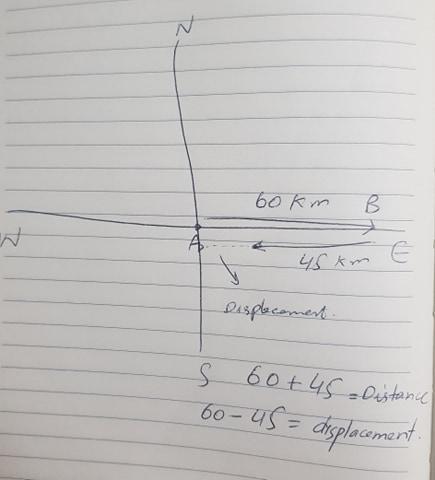 N
60 Km B
W A 45 km E
Displacement.
S 60+45 = Distance
60-45 = displacement.